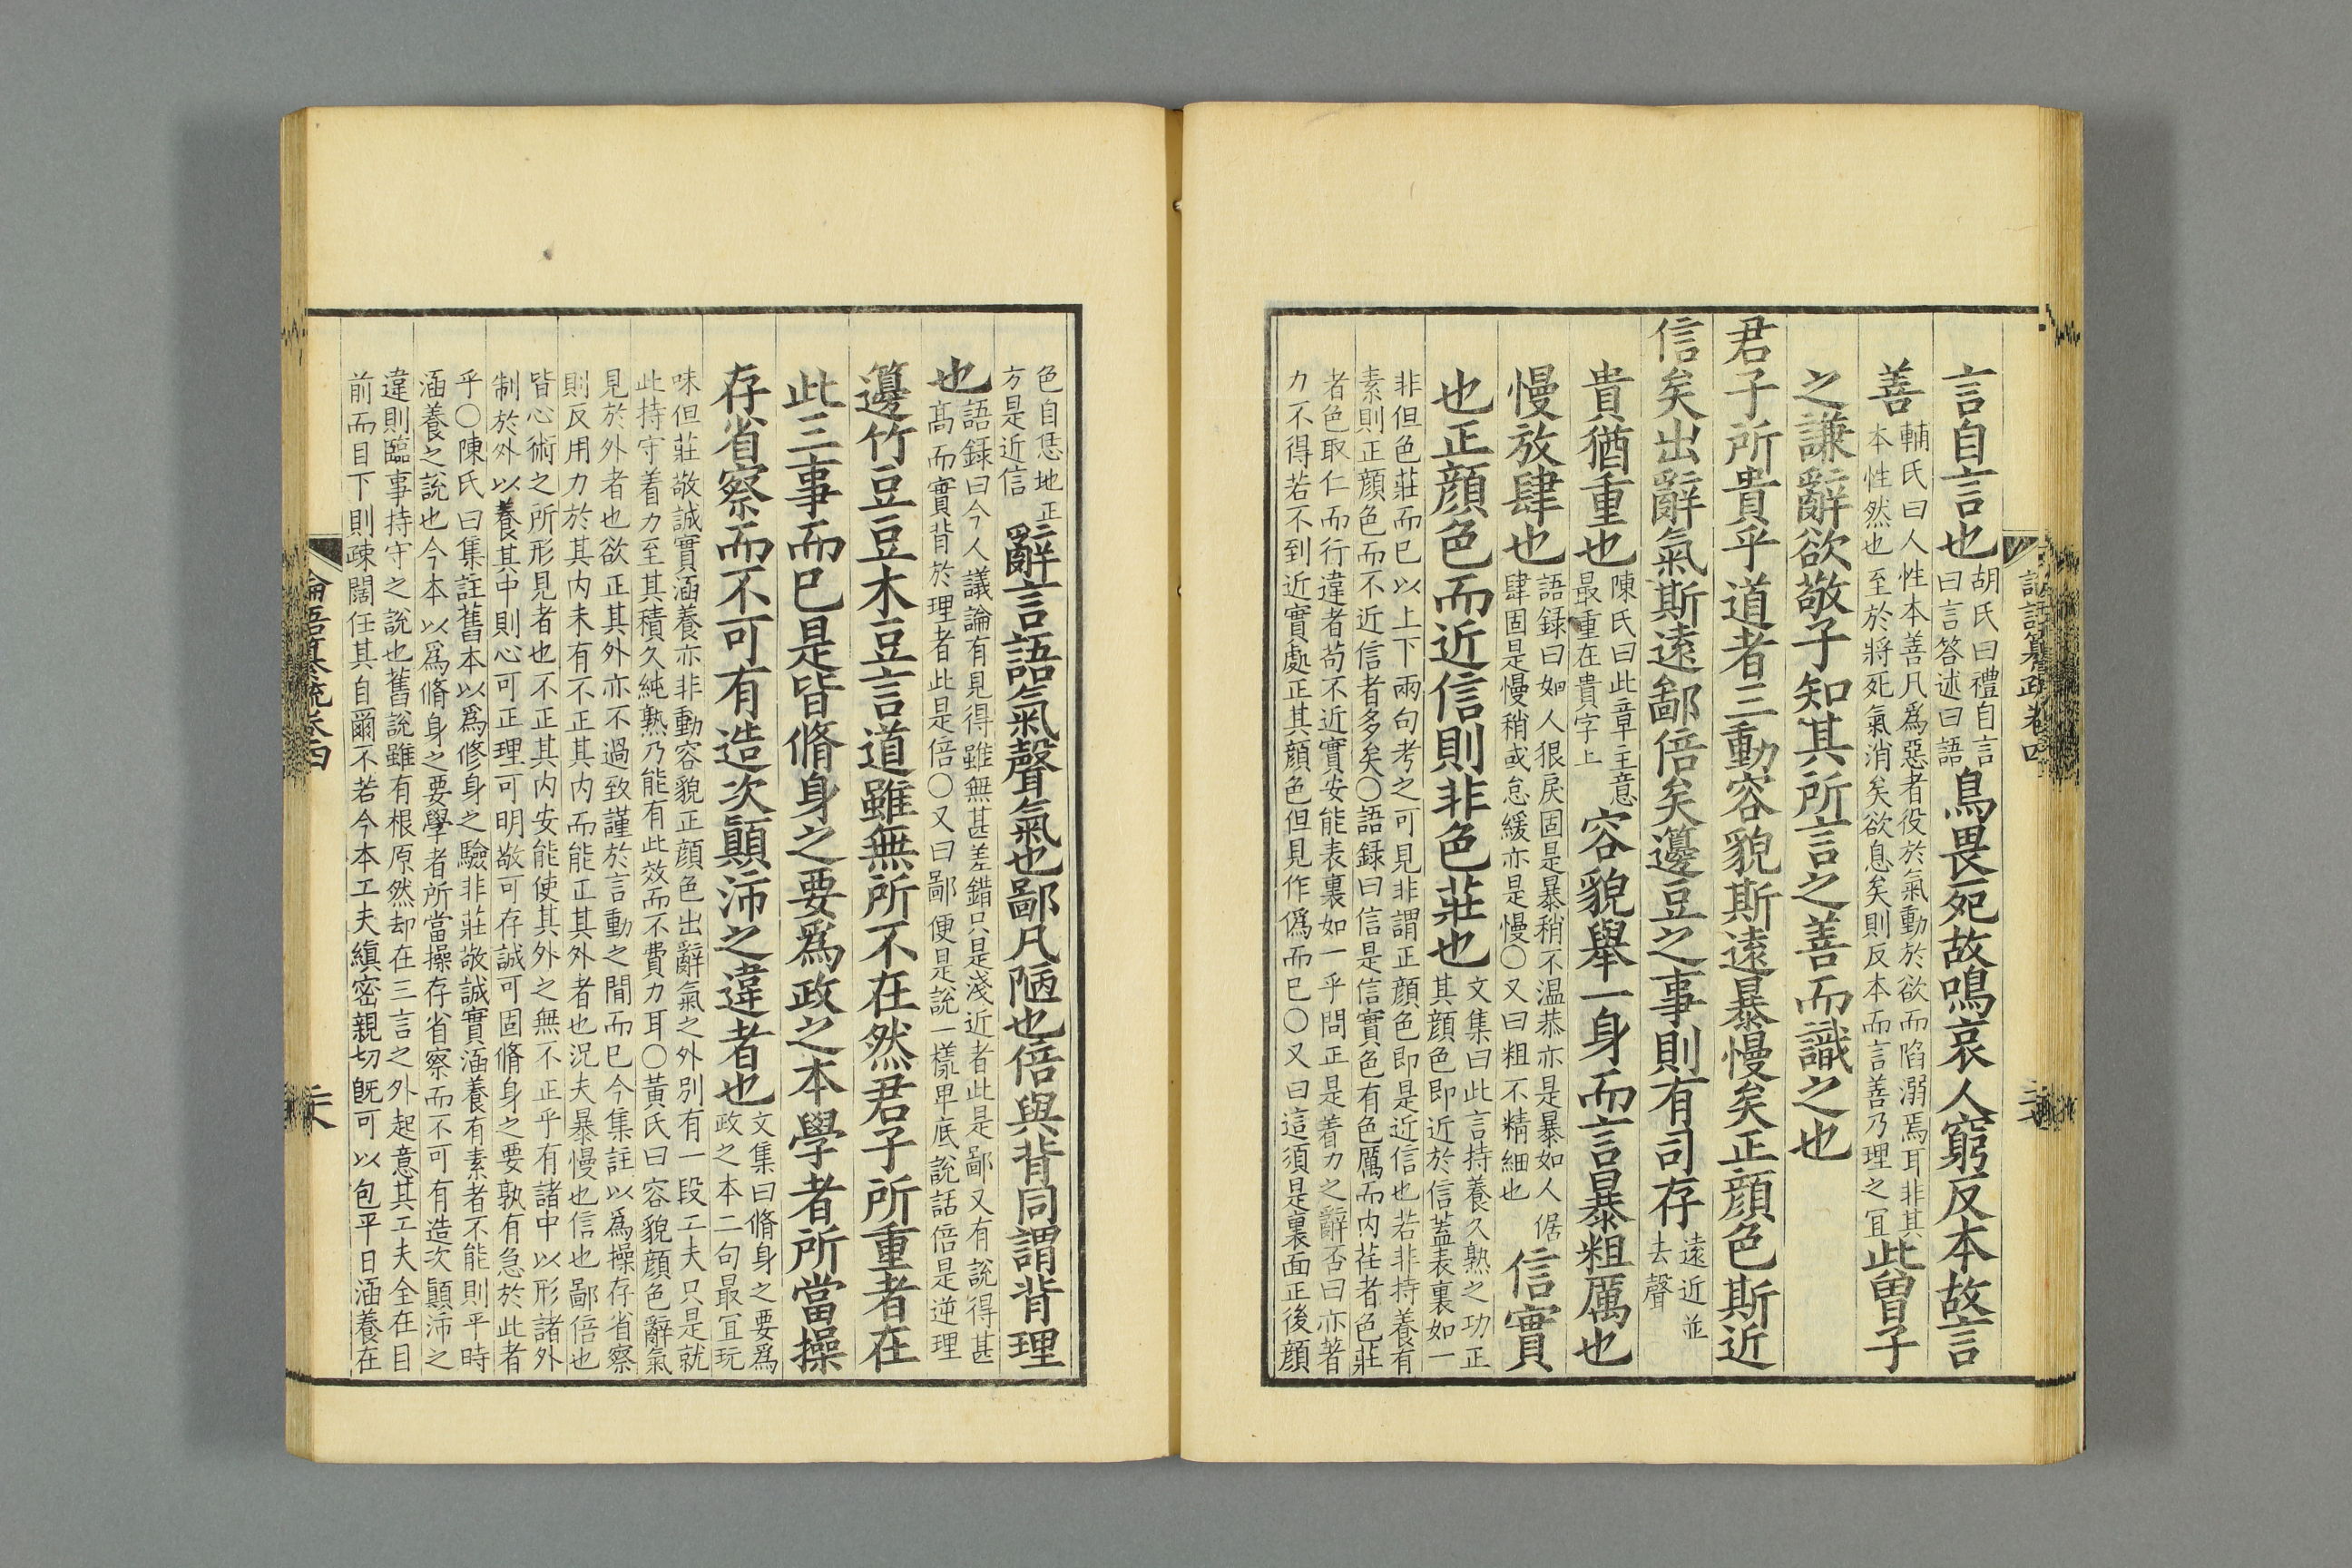 言自言也胡氏曰禮自言曰言答述曰語鳥畏死故鳴哀人窮反本故言
善輔氏曰人性本善凡爲惡者役於氣動於欲而陷溺焉耳非其本性然也至於將死氣消矣欲息矣則反本而言善乃理之冝此曽子
之謙辭欲敬子知其所言之善而識之也
君子所貴乎道者三動容貌斯遠暴慢矣正顔色斯近
信矣出辭氣斯遠鄙倍矣籩豆之事則有司存遠近並去聲
貴猶重也陳氏曰此章主意最重在貴字上容貌舉一身而言暴粗厲也
慢放肆也語録曰如人狠戾固是暴稍不温恭亦是暴如人倨肆固是慢稍或怠緩亦是慢〇又曰粗不精細也信實
也正顔色而近信則非色莊也文集曰此言持養久熟之功正其顔色即近於信蓋表裏如一
非但色莊而已以上下兩句考之可見非謂正顔色即是近信也若非持養有
素則正顔色而不近信者多矣〇語録曰信是信實色有色厲而内荏者色莊
者色取仁而行違者苟不近實安能表裏如一乎問正是着力之辭否曰亦著
力不得若不到近實處正其顔色但見作僞而已〇又曰這須是裏面正後顔
論語纂疏卷四
色自恁地正方是近信辭言語氣聲氣也鄙凡陋也倍與背同謂背理
也語録曰今人議論有見得雖無甚差錯只是淺近者此是鄙又有說得甚高而實背於理者此是倍〇又曰鄙便是說一樣卑底說話倍是逆理
籩竹豆豆木豆言道雖無所不在然君子所重者在
此三事而已是皆脩身之要爲政之本學者所當操
存省察而不可有造次顛沛之違者也文集曰脩身之要爲政之本二句最冝玩
味但莊敬誠實涵養亦非動容貌正顔色出辭氣之外別有一段工夫只是就
此持守着力至其積久純熟乃能有此效而不費力耳〇黃氏曰容貌顔色辭氣
見於外者也欲正其外亦不過致謹於言動之間而已今集註以爲操存省察
則反用力於其内未有不正其内而能正其外者也況夫暴慢也信也鄙倍也
皆心術之所形見者也不正其内安能使其外之無不正乎有諸中以形諸外
制於外以養其中則心可正理可明敬可存誠可固脩身之要孰有急於此者
乎〇陳氏曰集註舊本以爲修身之驗非莊敬誠實涵養有素者不能則平時
涵養之說也今本以爲脩身之要學者所當操存省察而不可有造次顛沛之
違則臨事持守之說也舊說雖有根原然却在三言之外起意其工夫全在目
前而目下則疎闊任其自爾不若今本工夫縝密親切旣可以包平日涵養在
論語纂疏卷四